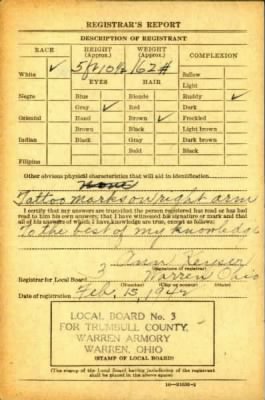 REGISTRAR'S REPORT
DESCRIPTION OF REGISTRANT
RACE HEIGHT (Approx.) WEIGHT (Approx.) COMPLEXION
White ✓ 5ft 10½ 162# Sallow
EYES HAIR Light
Negro Blue Blonde Ruddy ✓
Gray ✓ Red Dark
Oriental Hazel Brown ✓ Freckled
Brown Black Light brown
Indian Black Gray Dark brown
Bald Black
Filipino
Other obvious physical characteristics that will aid in identification
None
Tattoo marks on right arm
I certify that my answers are true; that the person registered has read or has had
read to him his own answers; that I have witnessed his signature or mark and that
all of his answers of which I have knowledge are true, except as follows:
To the best of my knowledge
Ann
(Signature of registrar)
Registrar for Local Board 3 Warren Ohio
(Number) (City or county) (State)
Date of registration Feb. 15, 1942
LOCAL BOARD No. 3
FOR TRUMBULL COUNTY,
WARREN ARMORY
WARREN, OHIO
(STAMP OF LOCAL BOARD)
(The stamp of the Local Board having jurisdiction of the registrant
shall be placed in the above space)